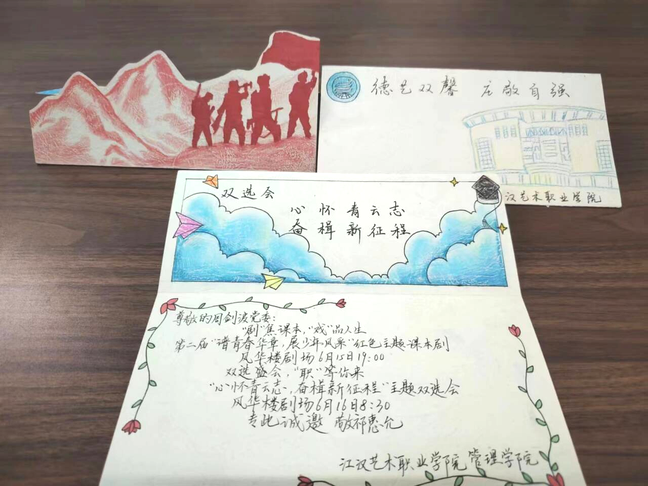 德艺双馨 庄敬自强
汉艺术职业学院
双选会
心怀青云志
奋楫新征程
尊敬的周剑波党委:
"剧"焦课本,"戏"品人生
第二届"谱青春华章,展少年风采"红色主题课本剧
风华楼剧场6月15日19:00
双选盛会,"职"等你来
"心怀青云志,奋楫新征程"主题双选会
风华楼剧场6月16日8:30
专此诚邀 敬祈惠允
江汉艺术职业学院管理学院